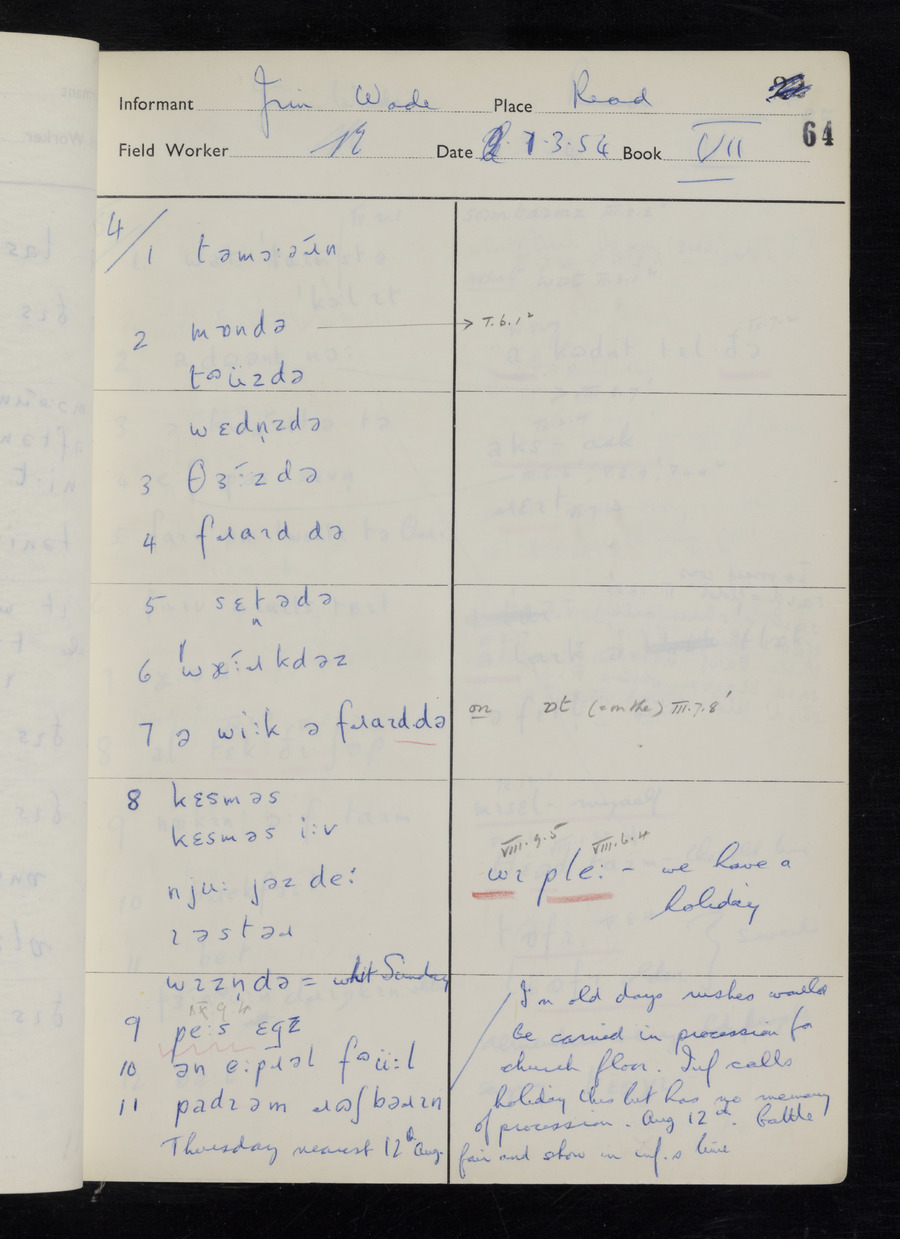 Informant Jim Wade Place Read
64
Field Worker Date 7.3.54 Book VII
4/1 təmɔ:əɹn
2 mɒndə → T.6.1²
tɵüzdə
wɛdn̩zdə
3 θɜ́:zdə
4 fɹaɪddə
5 sɛtədə
n
6 wæ:ɹkdəz
7 ə wi:k ə fɹaɪd.də on ɒt (= on the) III.7.8'
8 kɛsməs
kɛsməs i:v
VIII.9.5 VIII.6.4
wɪ ple: - we have a
holiday
nju: jəz de:
ɪəstəɹ
wɪznda = whit Sunday
9 pe:s ɛgz
10 ən e:pɹəl fɵü:l
11 padɪəm ɹɵʃbəɹɪn
Thursday nearest 12th Aug.
In old days rushes would
be carried in procession for
church floor. Inf calls
holiday this but has no memory
of procession. Aug 12th. Cattle
fair and show in inf.s time